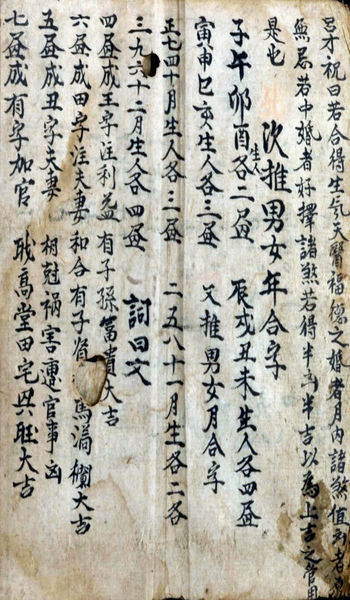 呂才祝曰若合得生気天醫福德之婚者月内諸煞值者
無忌若中婚者好擇諸煞若得半凶半吉以為上吉之管用
是也 次推男女年合字
子午卯酉生各二昼 辰戌丑未生人各四昼
寅申巳亥生人各三昼 又推男女月合字
正七四十月生人各三昼 二五八十一月生各二各
三九六十二月生人各四昼 詞曰文
四昼成王字注利益有子孫富貴大吉
六昼成田字注夫妻和合有子馬満大吉
五昼成丑字夫妻相冠禍害遭官事凶
七昼成有字加官職高堂田宅興旺大吉